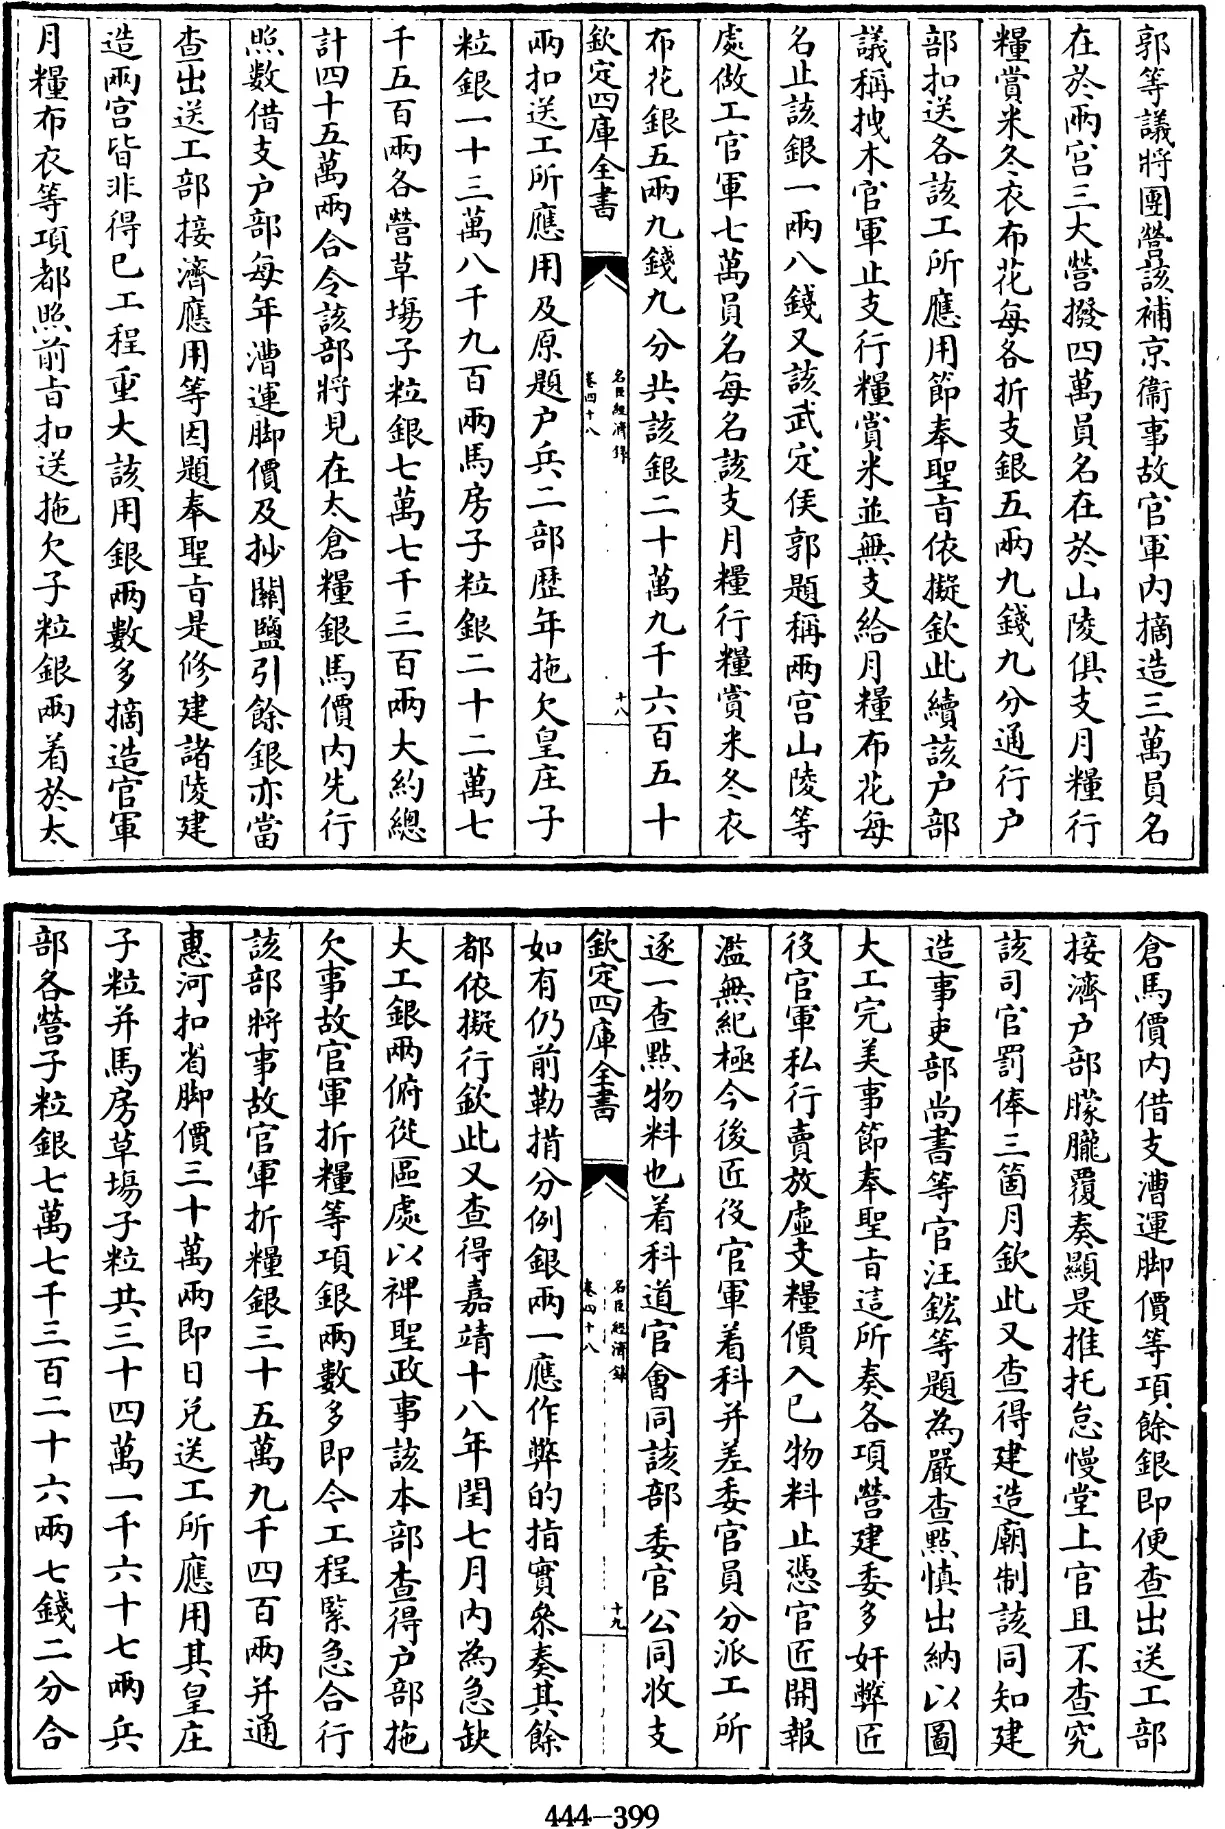 郭等議將團營該補京衞事故官軍內摘造三萬員名
在於兩宫三大營撥四萬員名在於山陵俱支月糧行
糧賞米冬衣布花每各折支銀五兩九錢九分通行户
部扣送各該工所應用節奉聖旨依擬欽此續該户部
議稱拽木官軍止支行糧賞米並無支給月糧布花每
名止該銀一兩八錢又該武定侯郭題稱兩宫山陵等
處做工官軍七萬員名每名該支月糧行糧賞米冬衣
布花銀五兩九錢九分共該銀二十萬九千六百五十
欽定四庫全書
名臣經濟錄
卷四十八
十八
兩扣送工所應用及原題户兵二部歷年拖欠皇庄子
粒銀一十三萬八千九百兩馬房子粒銀二十二萬七
千五百兩各營草塲子粒銀七萬七千三百兩大約總
計四十五萬兩合令該部將見在太倉糧銀馬價内先行
照數借支户部每年漕運脚價及抄關鹽引餘銀亦當
查出送工部接濟應用等因題奉聖旨是修建諸陵建
造兩宫皆非得已工程重大該用銀兩數多摘造官軍
月糧布衣等項都照前旨扣送拖欠子粒銀兩着於太
倉馬價内借支漕運脚價等項餘銀即便查出送工部
接濟户部朦朧覆奏顯是推托怠慢堂上官且不查究
該司官罰俸三箇月欽此又查得建造廟制該同知建
造事吏部尚書等官汪鋐等題為嚴查點慎出納以圖
大工完美事節奉聖旨這所奏各項營建委多奸弊匠
役官軍私行賣放虛支糧價入已物料止憑官匠開報
濫無紀極今後匠役官軍着科并差委官員分派工所
逐一查點物料也着科道官會同該部委官公同收支
欽定四庫全書
名臣經濟錄
卷四十八
十九
如有仍前勒掯分例銀兩一應作弊的指實叅奏其餘
都依擬行欽此又查得嘉靖十八年閏七月内為急缺
大工銀兩俯從區處以裨聖政事該本部查得户部拖
欠事故官軍折糧等項銀兩數多即今工程緊急合行
該部將事故官軍折糧銀三十五萬九千四百兩并通
惠河扣省脚價三十萬兩即日兑送工所應用其皇庄
子粒并馬房草塲子粒共三十四萬一千六十七兩兵
部各營子粒銀七萬七千三百二十六兩七錢二分合
444-399